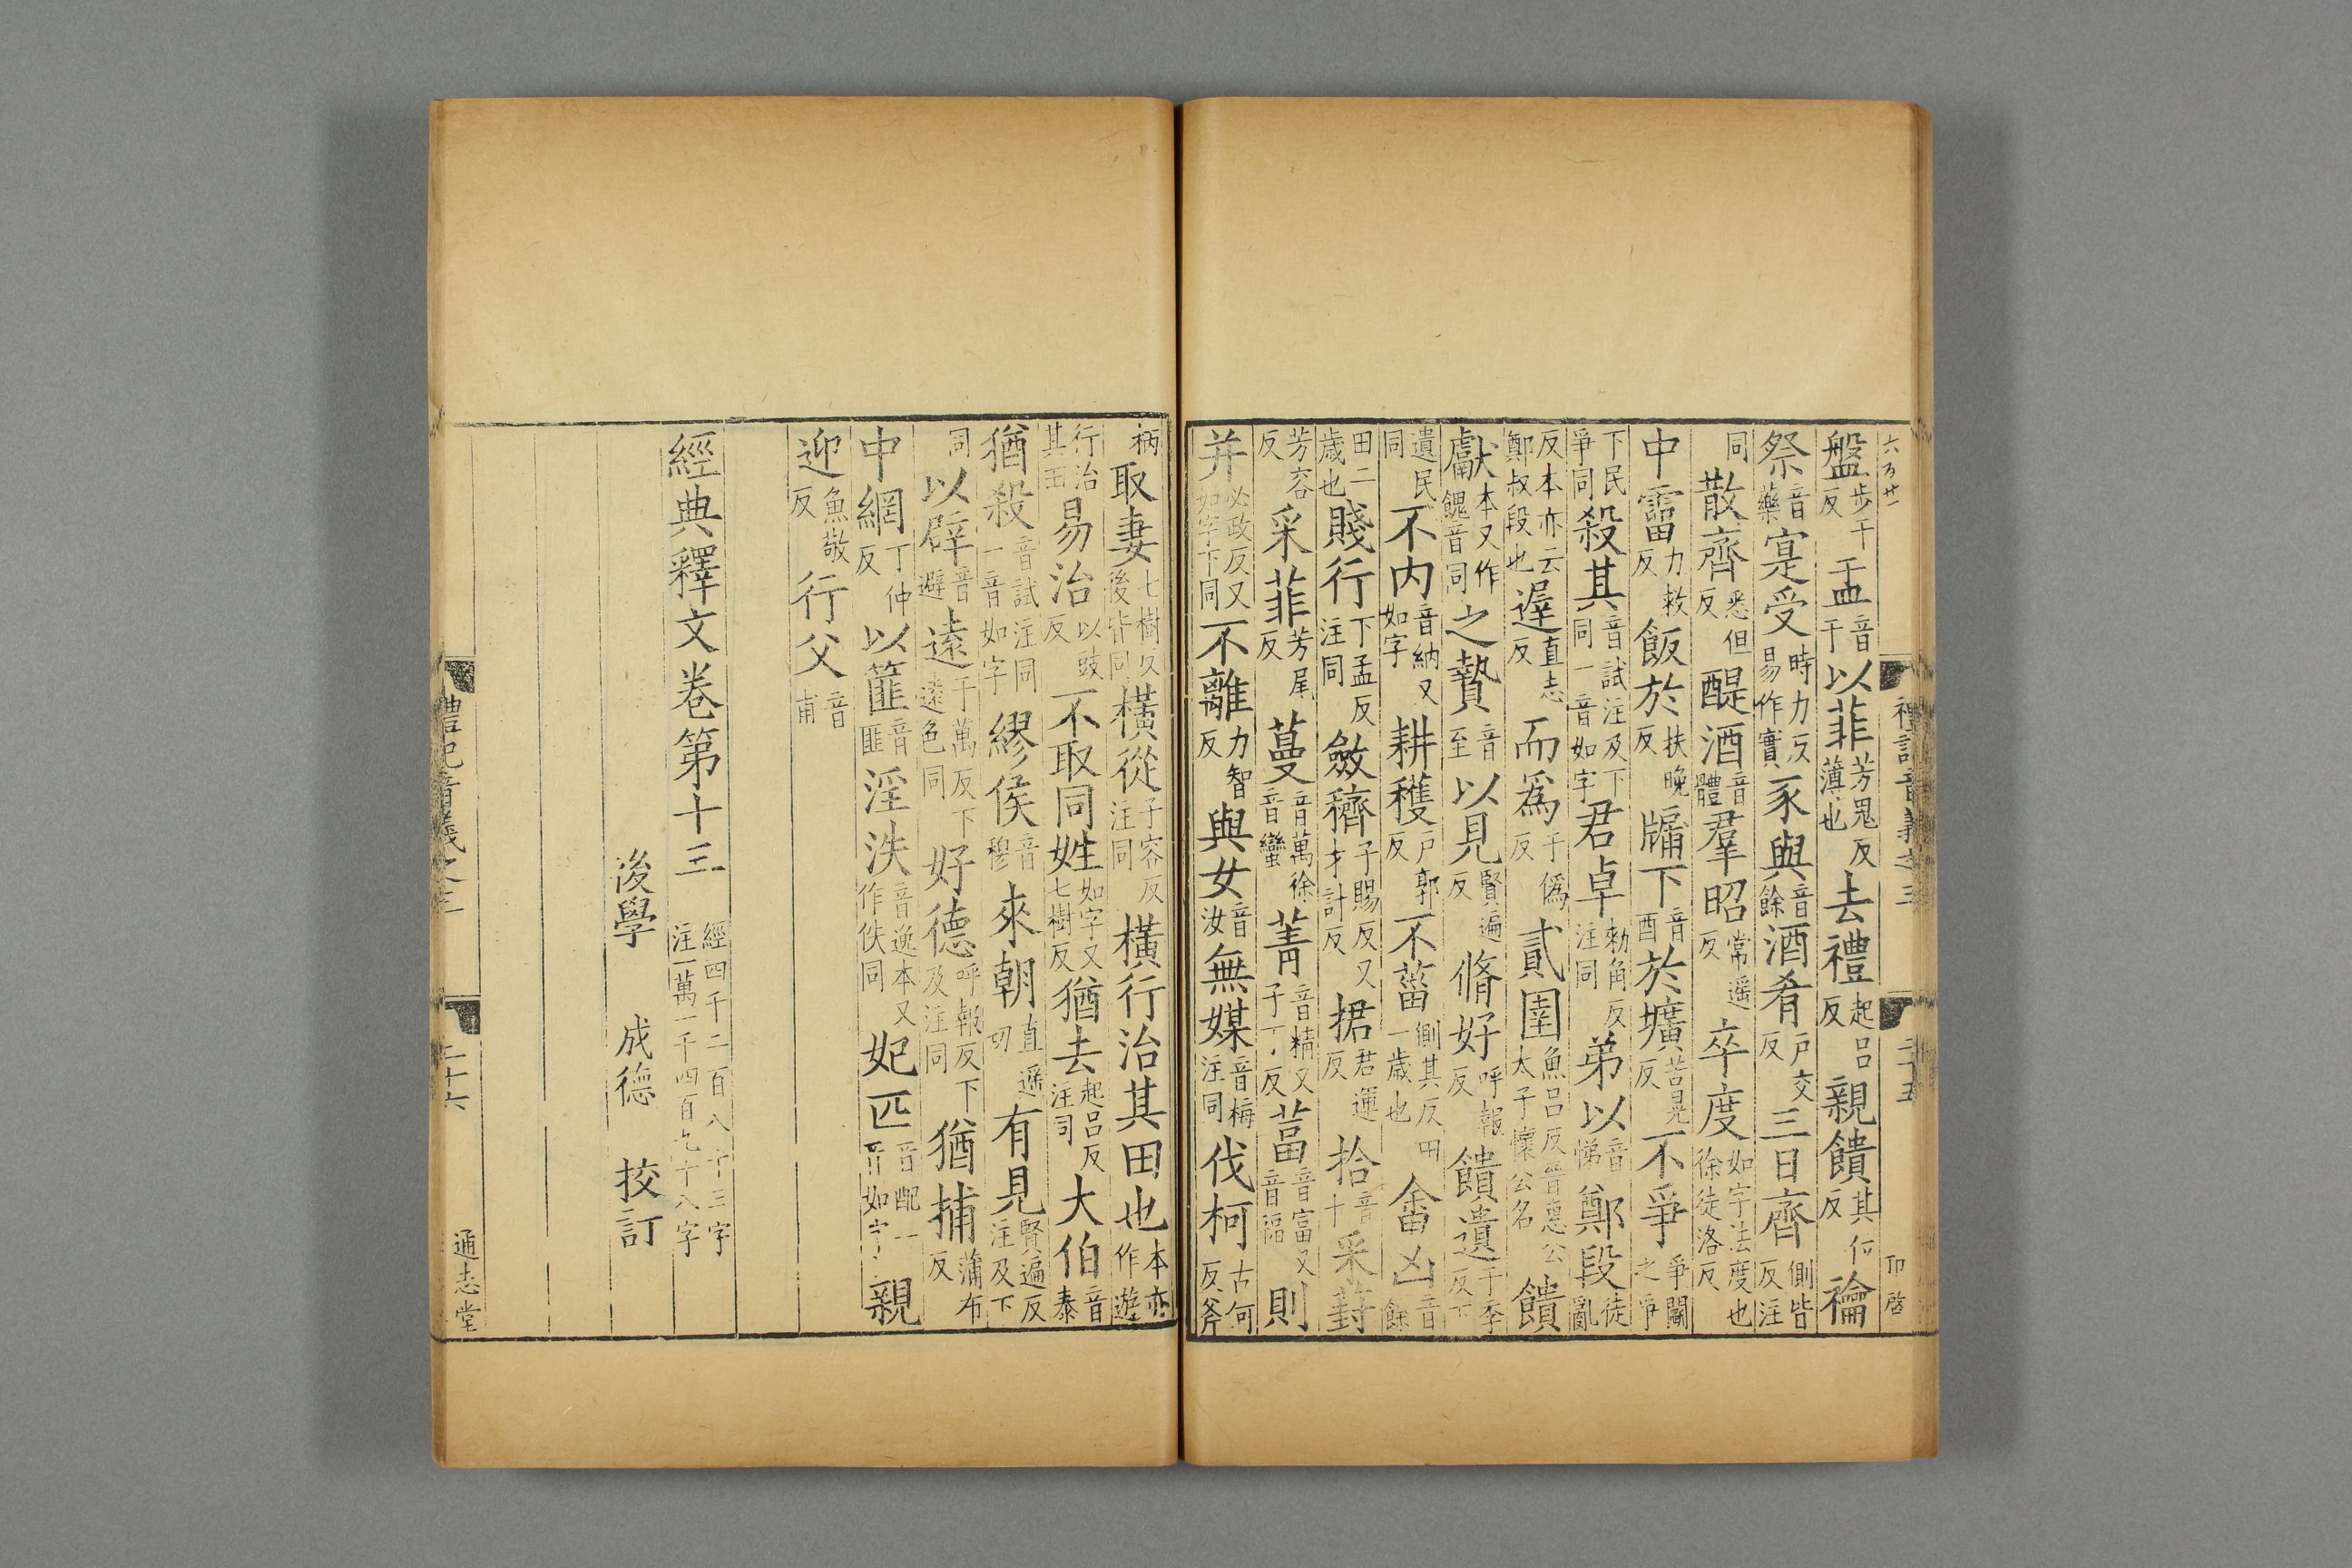 六百廿一
禮記音義之三
二十五
卬啓
盤步干反 盂音于 以菲芳鬼反薄也 去禮起呂反 親饋其位反 禴
祭音藥 寔受時力反易作實 豕與音餘 酒肴戶交反 三日齊側皆反注
同 散齊悉但反 醍酒音體 羣昭常遥反 卒度如字法度也徐徒洛反
中霤力救反 飯於扶晚反 牖下音酉 於壙苦晃反 不爭爭鬬之爭
下民爭同 殺其音試注及下同一音如字 君卓勑角反注同 弟以音悌 鄭段徒亂
反本亦云鄭叔段也 遟直志反 而爲于僞反 貳圉魚呂反晉惠公太子懷公名 饋
獻本又作餽音同 之贄音至 以見賢遍反 脩好呼報反 饋遺于季反下
遺民同 不内音納又如字 耕穫戶郭反 不菑側其反田一歲也 畬音餘 凶
田二歲也 賤行下孟反注同 斂穧子賜反又才計反 捃君運反 拾音十 采葑
芳容反 采菲芳尾反 蔓音萬徐音蠻 菁音精又子丁反 葍音富又音福 則
并必政反又如字下同 不離力智反 與女音汝 無媒音梅注同 伐柯古何反斧
柄 取妻七樹反後皆同 橫從子容反注同 橫行治其田也本亦作遊
行治其田 易治以豉反 不取同姓如字又七樹反 猶去起呂反注同 大伯音泰
猶殺音試注同一音如字 繆侯音穆 來朝直遥切 有見賢遍反注及下
同 以辟音避 遠于萬反下遠色同 好德呼報反下及注同 猶捕蒲布反
中網丁仲反 以篚音匪 淫泆音逸本又作佚同 妃匹音配一音如字 親
迎魚敬反 行父音甫
經典釋文卷第十三 經四千二百八十三字注一萬一千四百九十八字
後學 成德 挍訂
禮記音義之三
二十六
通志堂